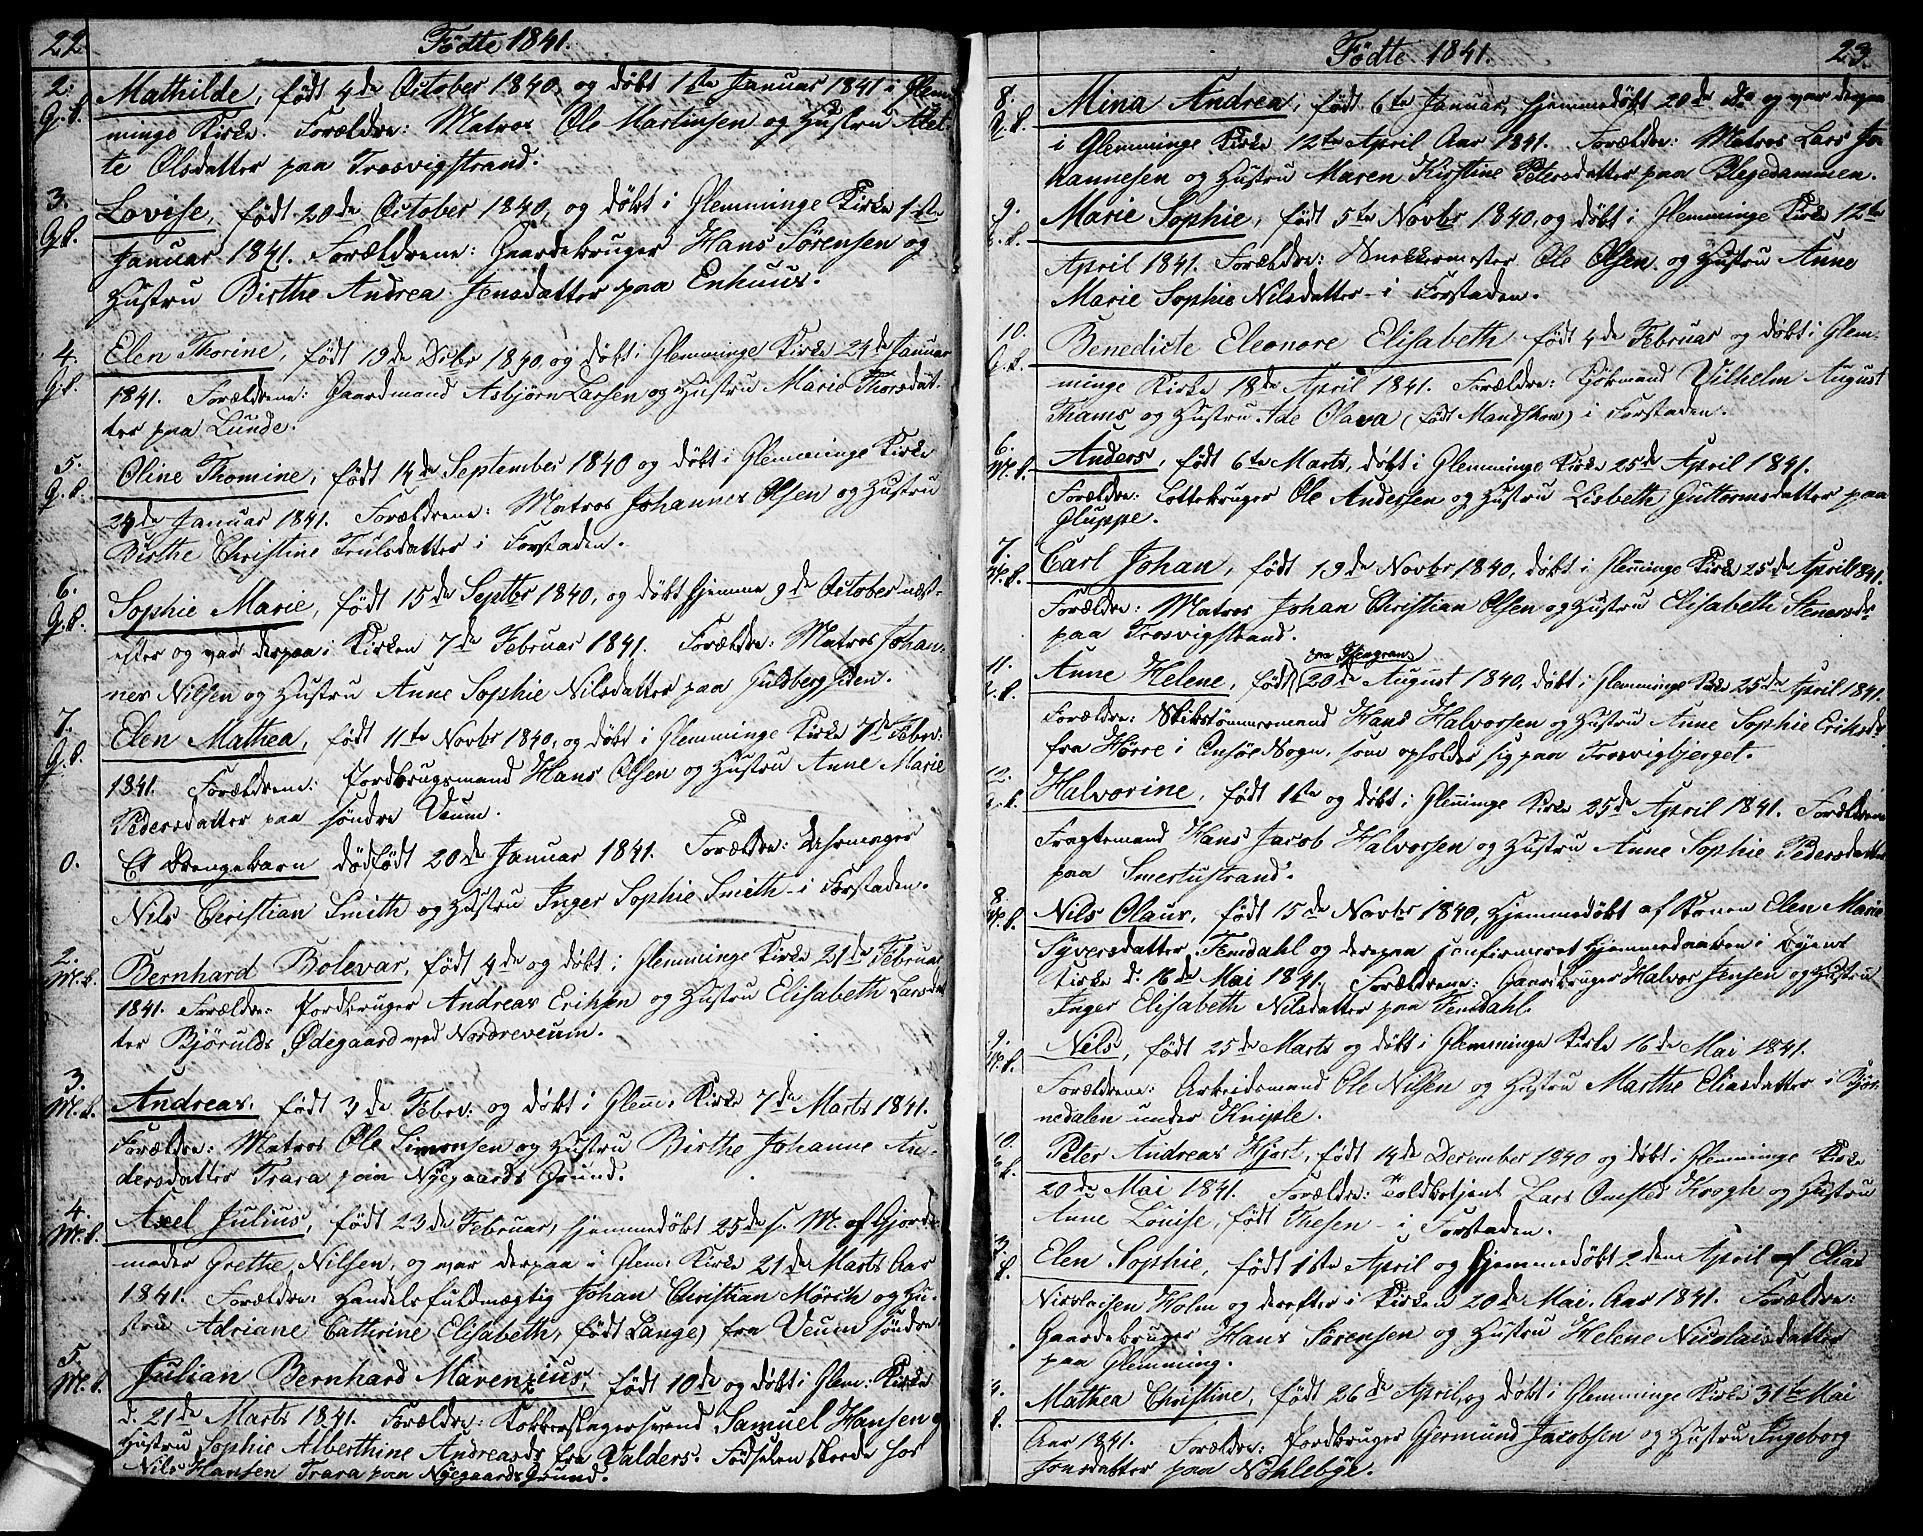 22. Födte 1841.
2. Mathilde, födt 4de October 1840, og döbt 1ste Januar 1841 i Glem-
Q.k. minge Kirke. Forældre: Matros Ole Martinsen og Hustru Alet-
te Olsdatter paa Trosvigstrand.
3. Lovise, födt 20de October 1840, og döbt i Glemminge Kirke 1ste
Q.k. Januar 1841. Forældrene: Gaardebruger Hans Sörensen og
Hustru Birthe Andrea Jensdatter paa Enhuus.
4. Elen Thorine, födt 19de Decbr 1840, og döbt i Glemminge Kirke 24de Januar
Q.k. 1841. Forældrene: Gaardmand Asbjörn Larsen og Hustru Marie Thorsdat-
ter paa Lunde.
5. Oline Thomine, födt 14de September 1840 og döbt i Glemminge Kirke
Q.k. 24de Januar 1841. Forældrene: Matros Johannes Olsen og Hustru
Birthe Christine Trulsdatter i Forstaden.
6. Sophie Marie, födt 15de Septbr 1840, og döbt hjemme 9de October næst-
Q.k. efter og var derpaa i Kirken 7de Februar 1841. Forældre: Matros Johan-
nes Nilsen og Hustru Anne Sophie Nilsdatter paa Guldberg Eden.
7. Elen Mathea, födt 11te Novbr 1840, og döbt i Glemminge Kirke 7de Febr:
Q.k. 1841. Forældrene: Jordbrugsmand Hans Olsen og Hustru Anne Marie
Pedersdatter paa söndre Veum.
0. Et Drengebarn dödfödt 20de Januar 1841. Forældre: Uhrmager
Nils Christian Smith og Hustru Inger Sophie Smith i Forstaden.
2. Bernhard Bolevar, födt 4de og döbt i Glemminge Kirke 21de Februar
M.k. 1841. Forældre: Jordbruger Andreas Eriksen og Hustru Elisabeth Larsdat-
ter Björulds Ödegaard ved Nordreveum.
3. Andreas, födt 3de Febr: og döbt i Glem: Kirke 7de Marts 1841.
M.k. Forældre: Matros Ole Simonsen og Hustru Birthe Johanne An-
dersdatter Trara paa Nyegaards Grund.
4. Axel Julius, födt 23de Februar, hjemmedöbt 25de s. M. af Gjorde-
M.k. moder Grethe Nilsen, og var derpaa i Glem: Kirke 21de Marts Aar
1841. Forældre: Handelsfuldmægtig Johan Christian Mörch og Hu-
stru Adriane Cathrine Elisabeth, födt Lange) fra Veum söndre
5. Julian Bernhard Marenzius, födt 10de og döbt i Glem: Kirke
M.k. d. 21de Marts 1841. Forældre: Kobberslagersvend Samuel Hansen og
Hustru Sophie Alberthine Andreasd: fra Valders. Födselen skede hos
Nils Hansen Trara paa Nyegaards Grund.
Födte 1841. 23.
8. Mina Andrea, födt 6te Januar, hjemmedöbt 20de do og var derpaa
Q.k. i Glemminge Kirke 12te April Aar 1841. Forældre: Matros Lars Jo-
hannesen og Hustru Maren Kirstine Petersdatter paa Blegedammen.
9. Marie Sophie, födt 5te Novbr 1840, og döbt i Glemminge Kirke 12te
Q.k. April 1841. Forældre: Snekkermester Ole Olsen og Hustru Anne
Marie Sophie Nilsdatter i Forstaden.
10. Benedicte Eleonore Elisabeth födt 4de Februar og döbt i Glem-
Q.k. minge Kirke 18de April 1841. Forældre: Kjöbmand Vilhelm August
Thams og Hustru Ide Olava (födt Mandskow) i Forstaden.
6. Anders, födt 6te Marts, döbt i Glemminge Kirke 25de April 1841.
M.k. Forældre: Lottebruger Ole Andersen og Hustru Lisbeth Guttormsdatter paa
Gluppe.
7. Carl Johan, födt 19de Novbr 1840, döbt i Gleminge Kirke 25de April 1841.
M.k. Forældre: Matros Johan Christian Olsen og Hustru Elisabeth Stenersd:
paa Trosvigstrand.
11. Anne Helene, födt 20de August 1840, döbt i Glemminge Kirke 25de April 1841.
Q.k. Forældre: Skibstömmermand Hans Halvorsen og Hustru Anne Sophie Eriksd:
fra Hörre i Onsöe Sogn, som opholder sig paa Trosvigbjerget.
12. Halvorine, födt 1ste og döbt i Gleminge Kirke 25de April 1841. Forældre
Q.k. Fragtemand Hans Jacob Halvorsen og Hustru Anne Sophie Pedersdatter
paa Smertustrand.
8. Nils Olaus, födt 15de Novbr 1840, hjemmedöbt af Konen Elen Marie
M.k. Syversdatter Temdahl og derpaa confirmeret hjemmedaaben i Byens
Kirke d. 16de Mai 1841. Forældrene: Gaardbruger Halvor Jensen og Hustru
Inger Elisabeth Nilsdatter paa Temdahl.
9. Nils, födt 25de Marts og döbt i Glemminge Kirke 16de Mai 1841.
M.k. Forældrene: Arbeidsmand Ole Nilsen og Hustru Marthe Eliasdatter i Björ-
nedalen under Kniple.
10. Peter Andreas Hjort, födt 14de December 1840 og döbt i Glemminge Kirke
20de Mai 1841. Forældre: Toldbetjent Lars Omsted Krogh og Hustru
Anne Louise, födt Thesen i Forstaden.
Elen Sophie, födt 1ste April og hjemmedöbt 2den April af Elias
Nicolaisen Holm og derefter i Kirken 20de Mai Aar 1841. Forældre:
Gaardebruger Hans Sörensen og Hustru Helene Nicolaisdatter
paa Glemming.
Mathea Christine, födt 26de April, og döbt i Glemminge Kirke 31te Mai
Aar 1841. Forældre: Jordbruger Gjermund Jacobsen og Hustru Ingeborg
Jonsdatter paa Nöhlebye.